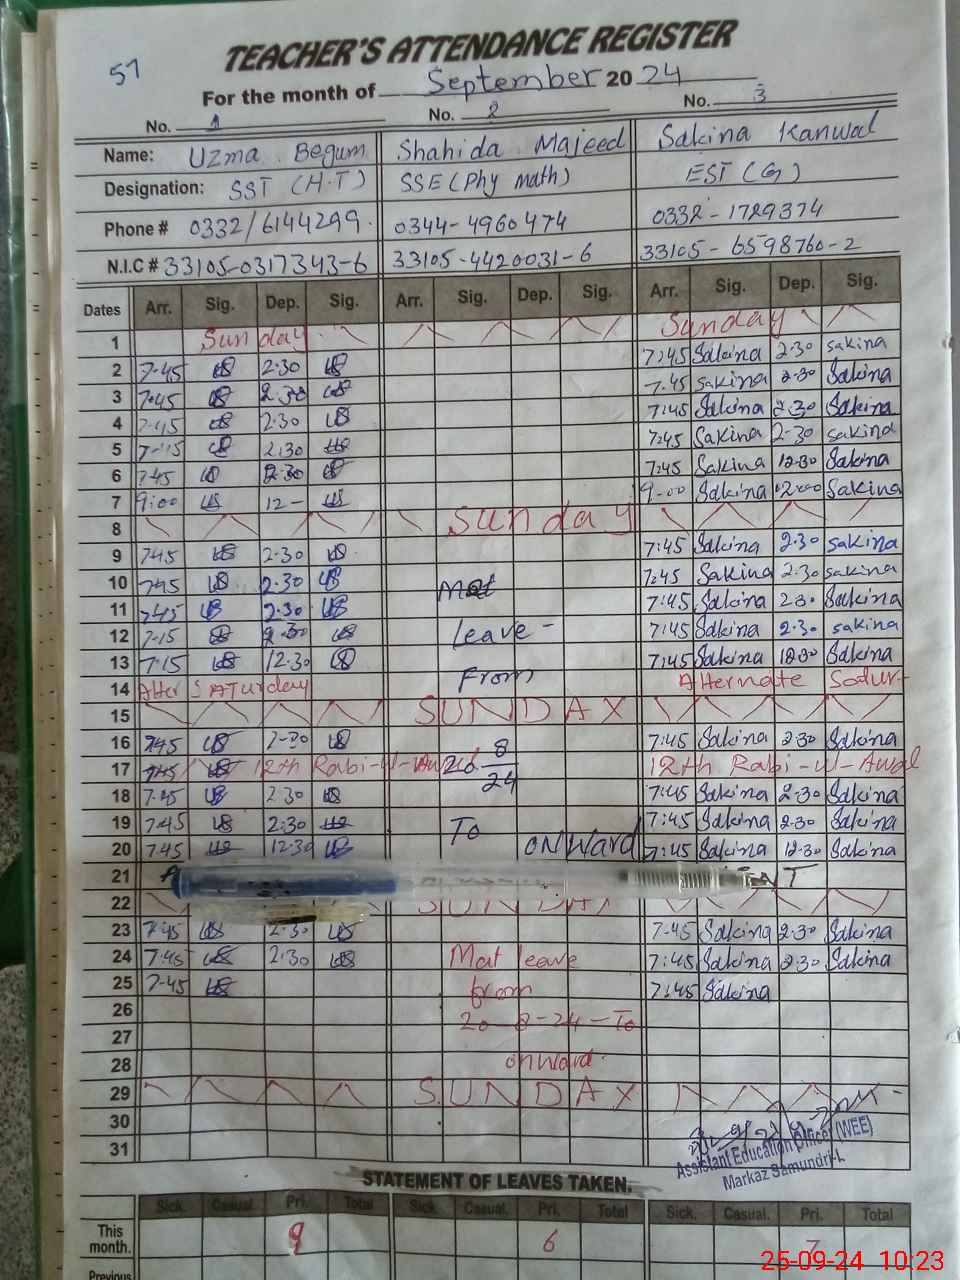 TEACHER'S ATTENDANCE REGISTER
51
For the month of September 2024
No. 1 No. 2 No. 3
Name: Uzma Begum Shahida Majeed Sakina Kanwal
Designation: SST (H.T) SSE (Phy math) EST (G)
Phone # 0332/6144299 0344-4960474 0332-1729374
N.I.C # 33105-0317343-6 33105-4420031-6 33105-6598760-2
Dates Arr. Sig. Dep. Sig. Arr. Sig. Dep. Sig. Arr. Sig. Dep. Sig.
1 Sunday Sunday
2 7-45 2.30 7:45 Sakina 2.30 sakina
3 7.45 2.30 7.45 sakina 2.30 Sakina
4 7-45 2.30 7:45 Sakina 2.30 Sakina
5 2.30 7:45 Sakina 2-30 sakina
6 7.45 2.30 7:45 Sakina 12.30 Sakina
7 9:00 12- 9-00 Sakina 12.00 Sakina
8 Sunday
9 7.45 2.30 7:45 Sakina 2.30 sakina
10 7.45 2.30 Mat 7:45 Sakina 2.30 sakina
11 7.45 2.30 7:45 Sakina 2.30 Sakina
12 7.15 2.30 Leave - 7:45 Sakina 2.30 sakina
13 7.15 12.30 7:45 Sakina 12.30 Sakina
14 Alter SATurday From Alternate Satur
15 SUNDAY
16 7.45 2-30 7:45 Sakina 2.30 Sakina
17 7.45 12th Rabi-ul-Awal 20. 8/24 12th Rabi-ul-Awal
18 7.45 2.30 7:45 Sakina 2.30 Sakina
19 7.45 2.30 To 7:45 Sakina 2.30 Sakina
20 7.45 12.30 onward 7:45 Sakina 12.30 Sakina
21
22 SUNDAY
23 7.45 2.30 7.45 Sakina 2.30 Sakina
24 7.45 2.30 Mat leave 7:45 Sakina 2.30 Sakina
25 7-45 from 7:45 Sakina
26 20-8-24-To
27
28 onward.
29 SUNDAY
30
31
Assistant Education Officer (WEE)
Markaz Samundri-I
STATEMENT OF LEAVES TAKEN.
Sick. Casual. Pri. Total Sick. Casual. Pri. Total Sick. Casual. Pri. Total
This month. 9 6 7
Previous
25-09-24 10:23